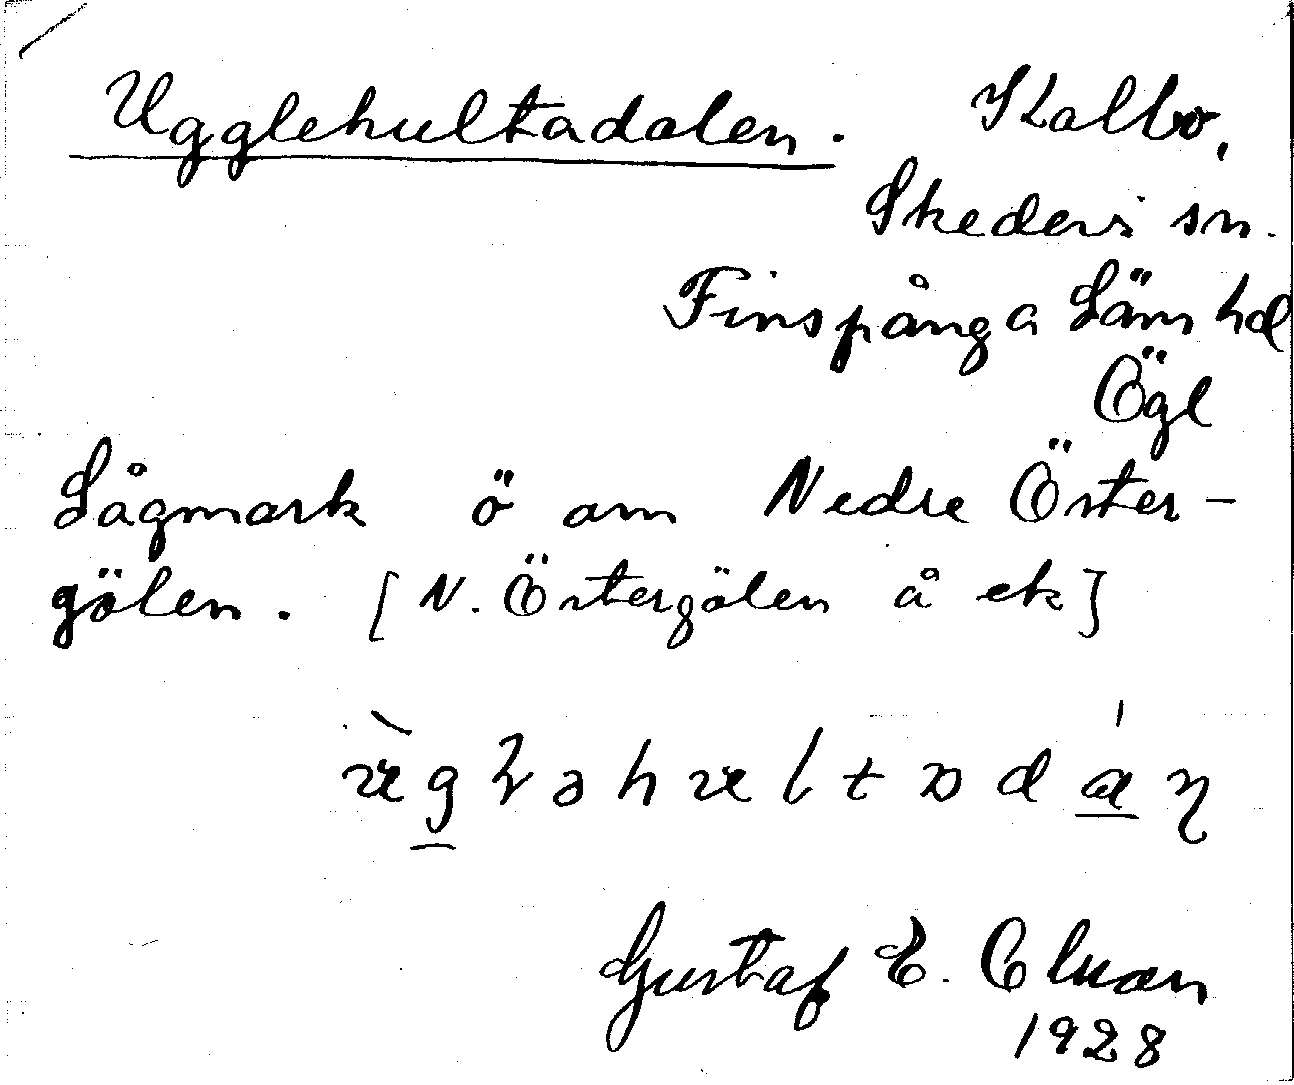 Ugglehultadalen. Kalbo,
Skedevi sn.
Finspånga Läns hd
Ögl
Lågmark ö om Nedre Öster-
gölen. [N. Östergölen å ek]
Gustaf E. Clason
1928